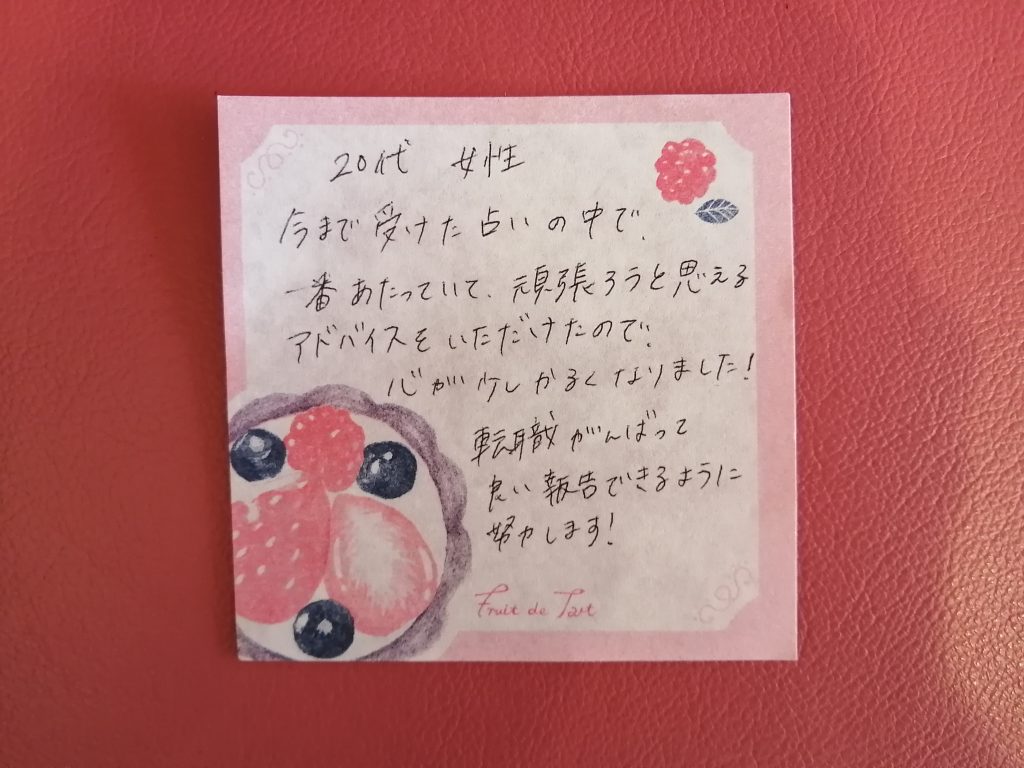 20代 女性
今まで受けた占いの中で、
一番あたっていて、頑張ろうと思える
アドバイスをいただけたので、
心が少しかるくなりました!
転職がんばって
良い報告できるように
努力します!
Fruit de Tart